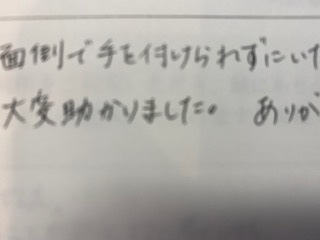 面倒で手を付けられずにいた
大変助かりました。 ありが